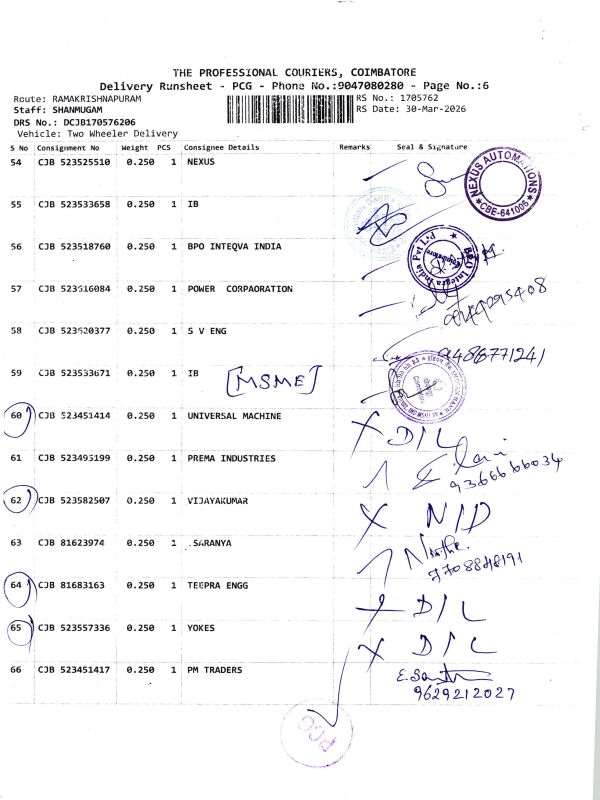 THE PROFESSIONAL COURIERS, COIMBATORE
Delivery Runsheet - PCG - Phone No.:9047080280 - Page No.:6
Route: RAMAKRISHNAPURAM
RS No.: 1705762
Staff: SHANMUGAM
RS Date: 30-Mar-2026
DRS No.: DCJB170576206
Vehicle: Two Wheeler Delivery
S No Consignment No Weight PCS Consignee Details Remarks Seal & Signature
54 CJB 523525510 0.250 1 NEXUS
NEXUS AUTOMATIONS
CBE-641006
55 CJB 523533658 0.250 1 IB
56 CJB 523518760 0.250 1 BPO INTEQVA INDIA
BPO Integra India Pvt Ltd
Coimbatore
57 CJB 523516084 0.250 1 POWER CORPAORATION
58 CJB 523520377 0.250 1 S V ENG
9486771241
59 CJB 523533671 0.250 1 IB [MSME]
60 CJB 523451414 0.250 1 UNIVERSAL MACHINE X D/L
61 CJB 523495199 0.250 1 PREMA INDUSTRIES
9366666034
62 CJB 523582507 0.250 1 VIJAYAKUMAR X N/D
63 CJB 81623974 0.250 1 .SARANYA
7708848191
64 CJB 81683163 0.250 1 TEEPRA ENGG X D/L
65 CJB 523557336 0.250 1 YOKES X D/L
66 CJB 523451417 0.250 1 PM TRADERS
9629212027
PCG